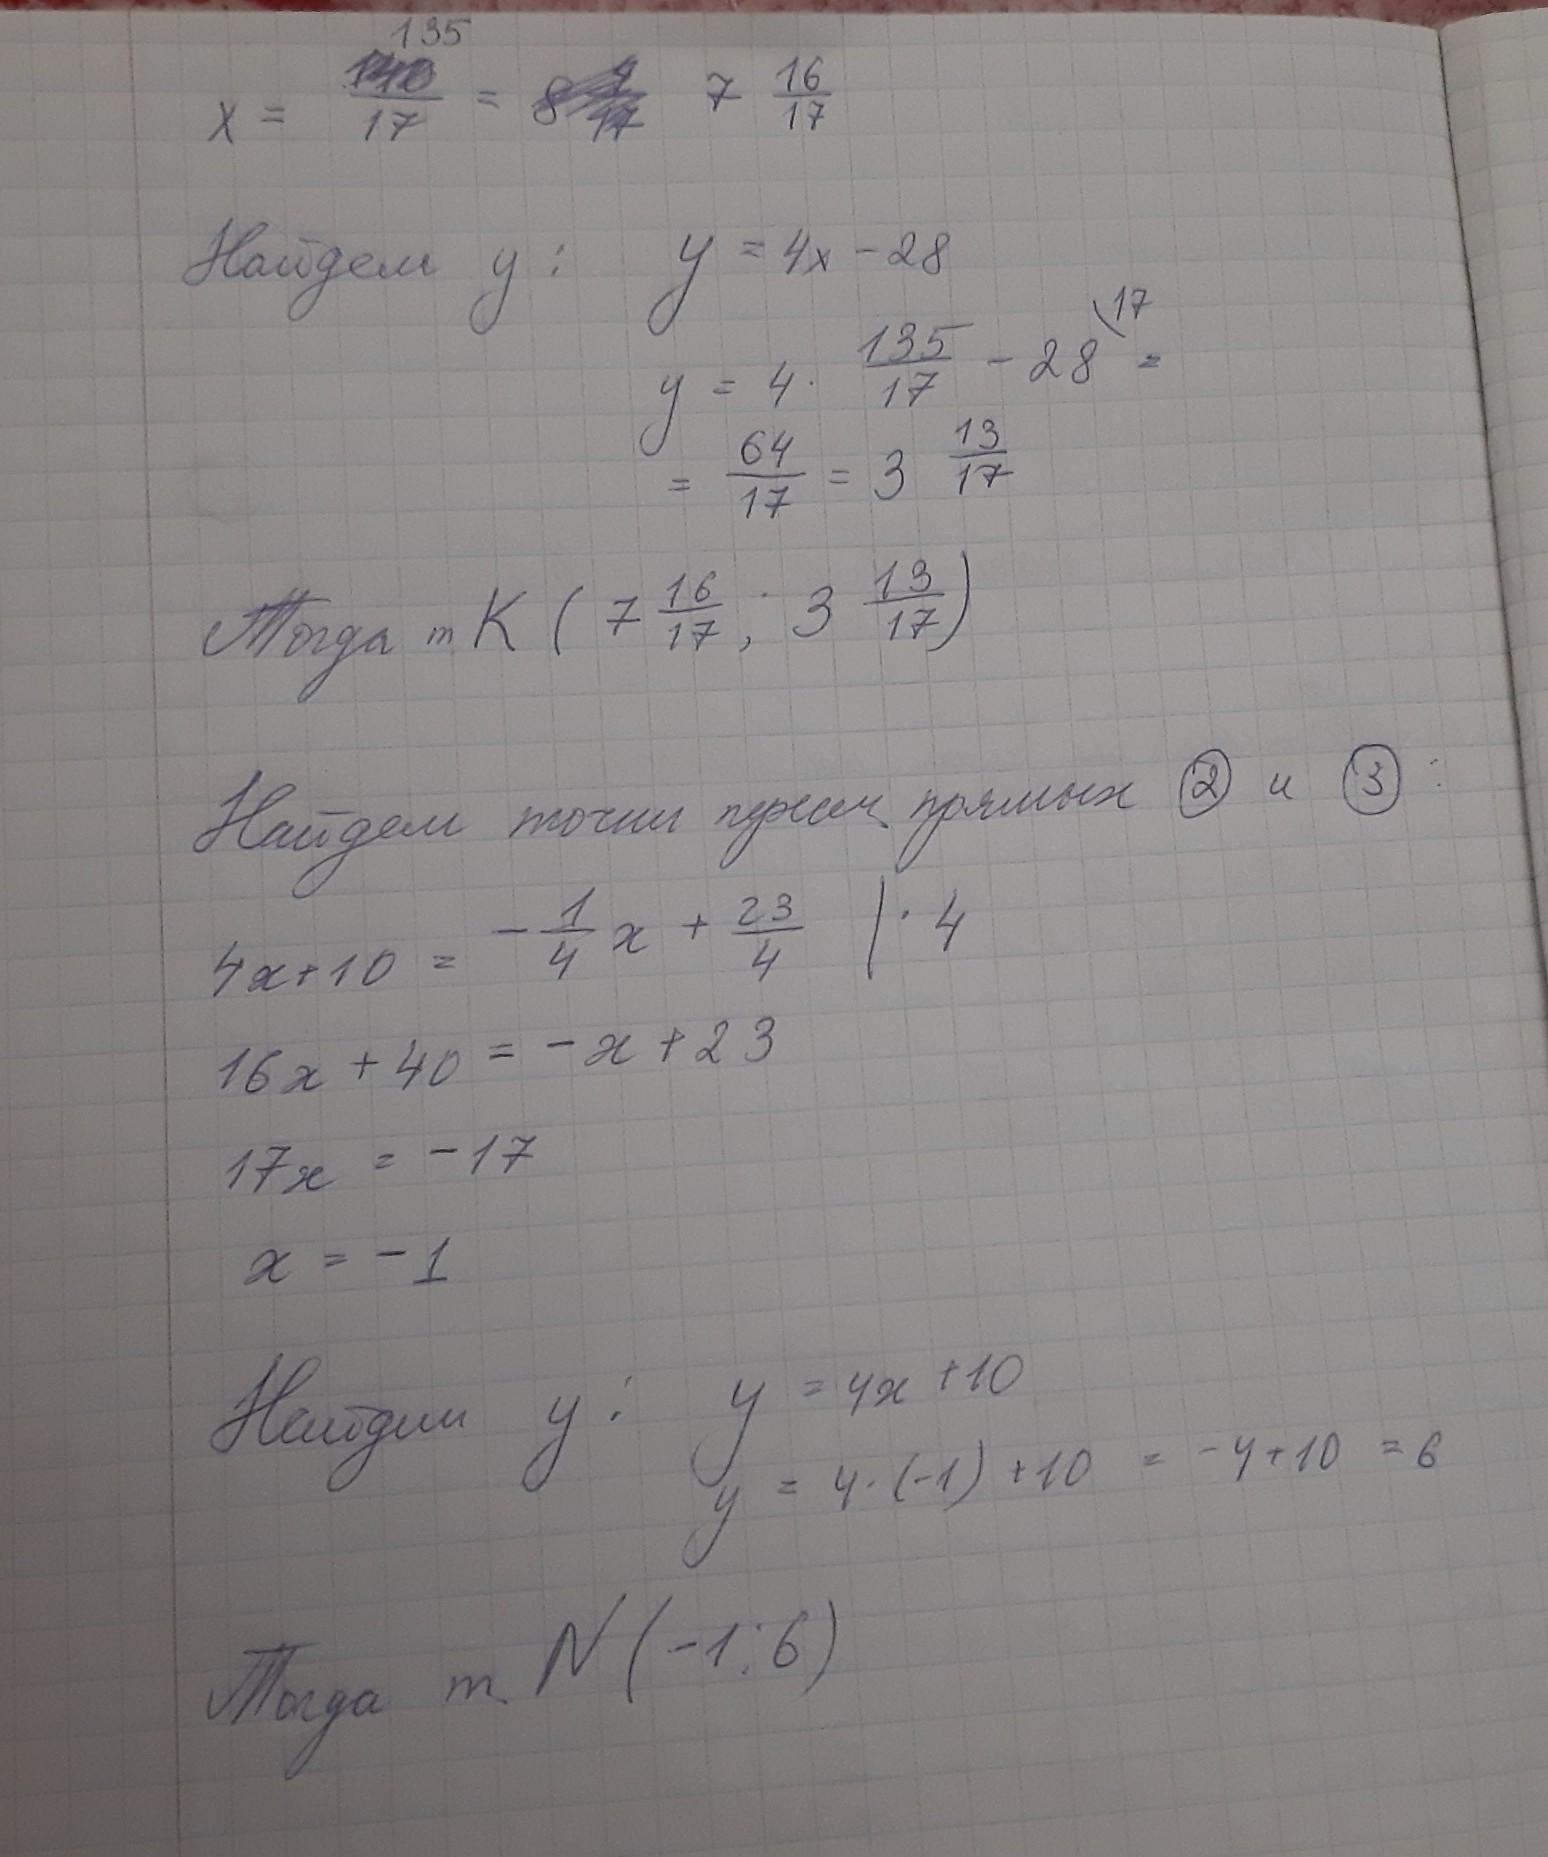 x = 135/17 = 7 16/17
Найдем y: y = 4x - 28
y = 4 · 135/17 - 28 \17 =
= 64/17 = 3 13/17
Тогда т K ( 7 16/17 ; 3 13/17 )
Найдем точки перисеч. прямых ② и ③ :
4x + 10 = - 1/4 x + 23/4 | · 4
16x + 40 = -x + 23
17x = -17
x = -1
Найдем y: y = 4x + 10
y = 4 · (-1) + 10 = -4 + 10 = 6
Тогда т. N (-1; 6)